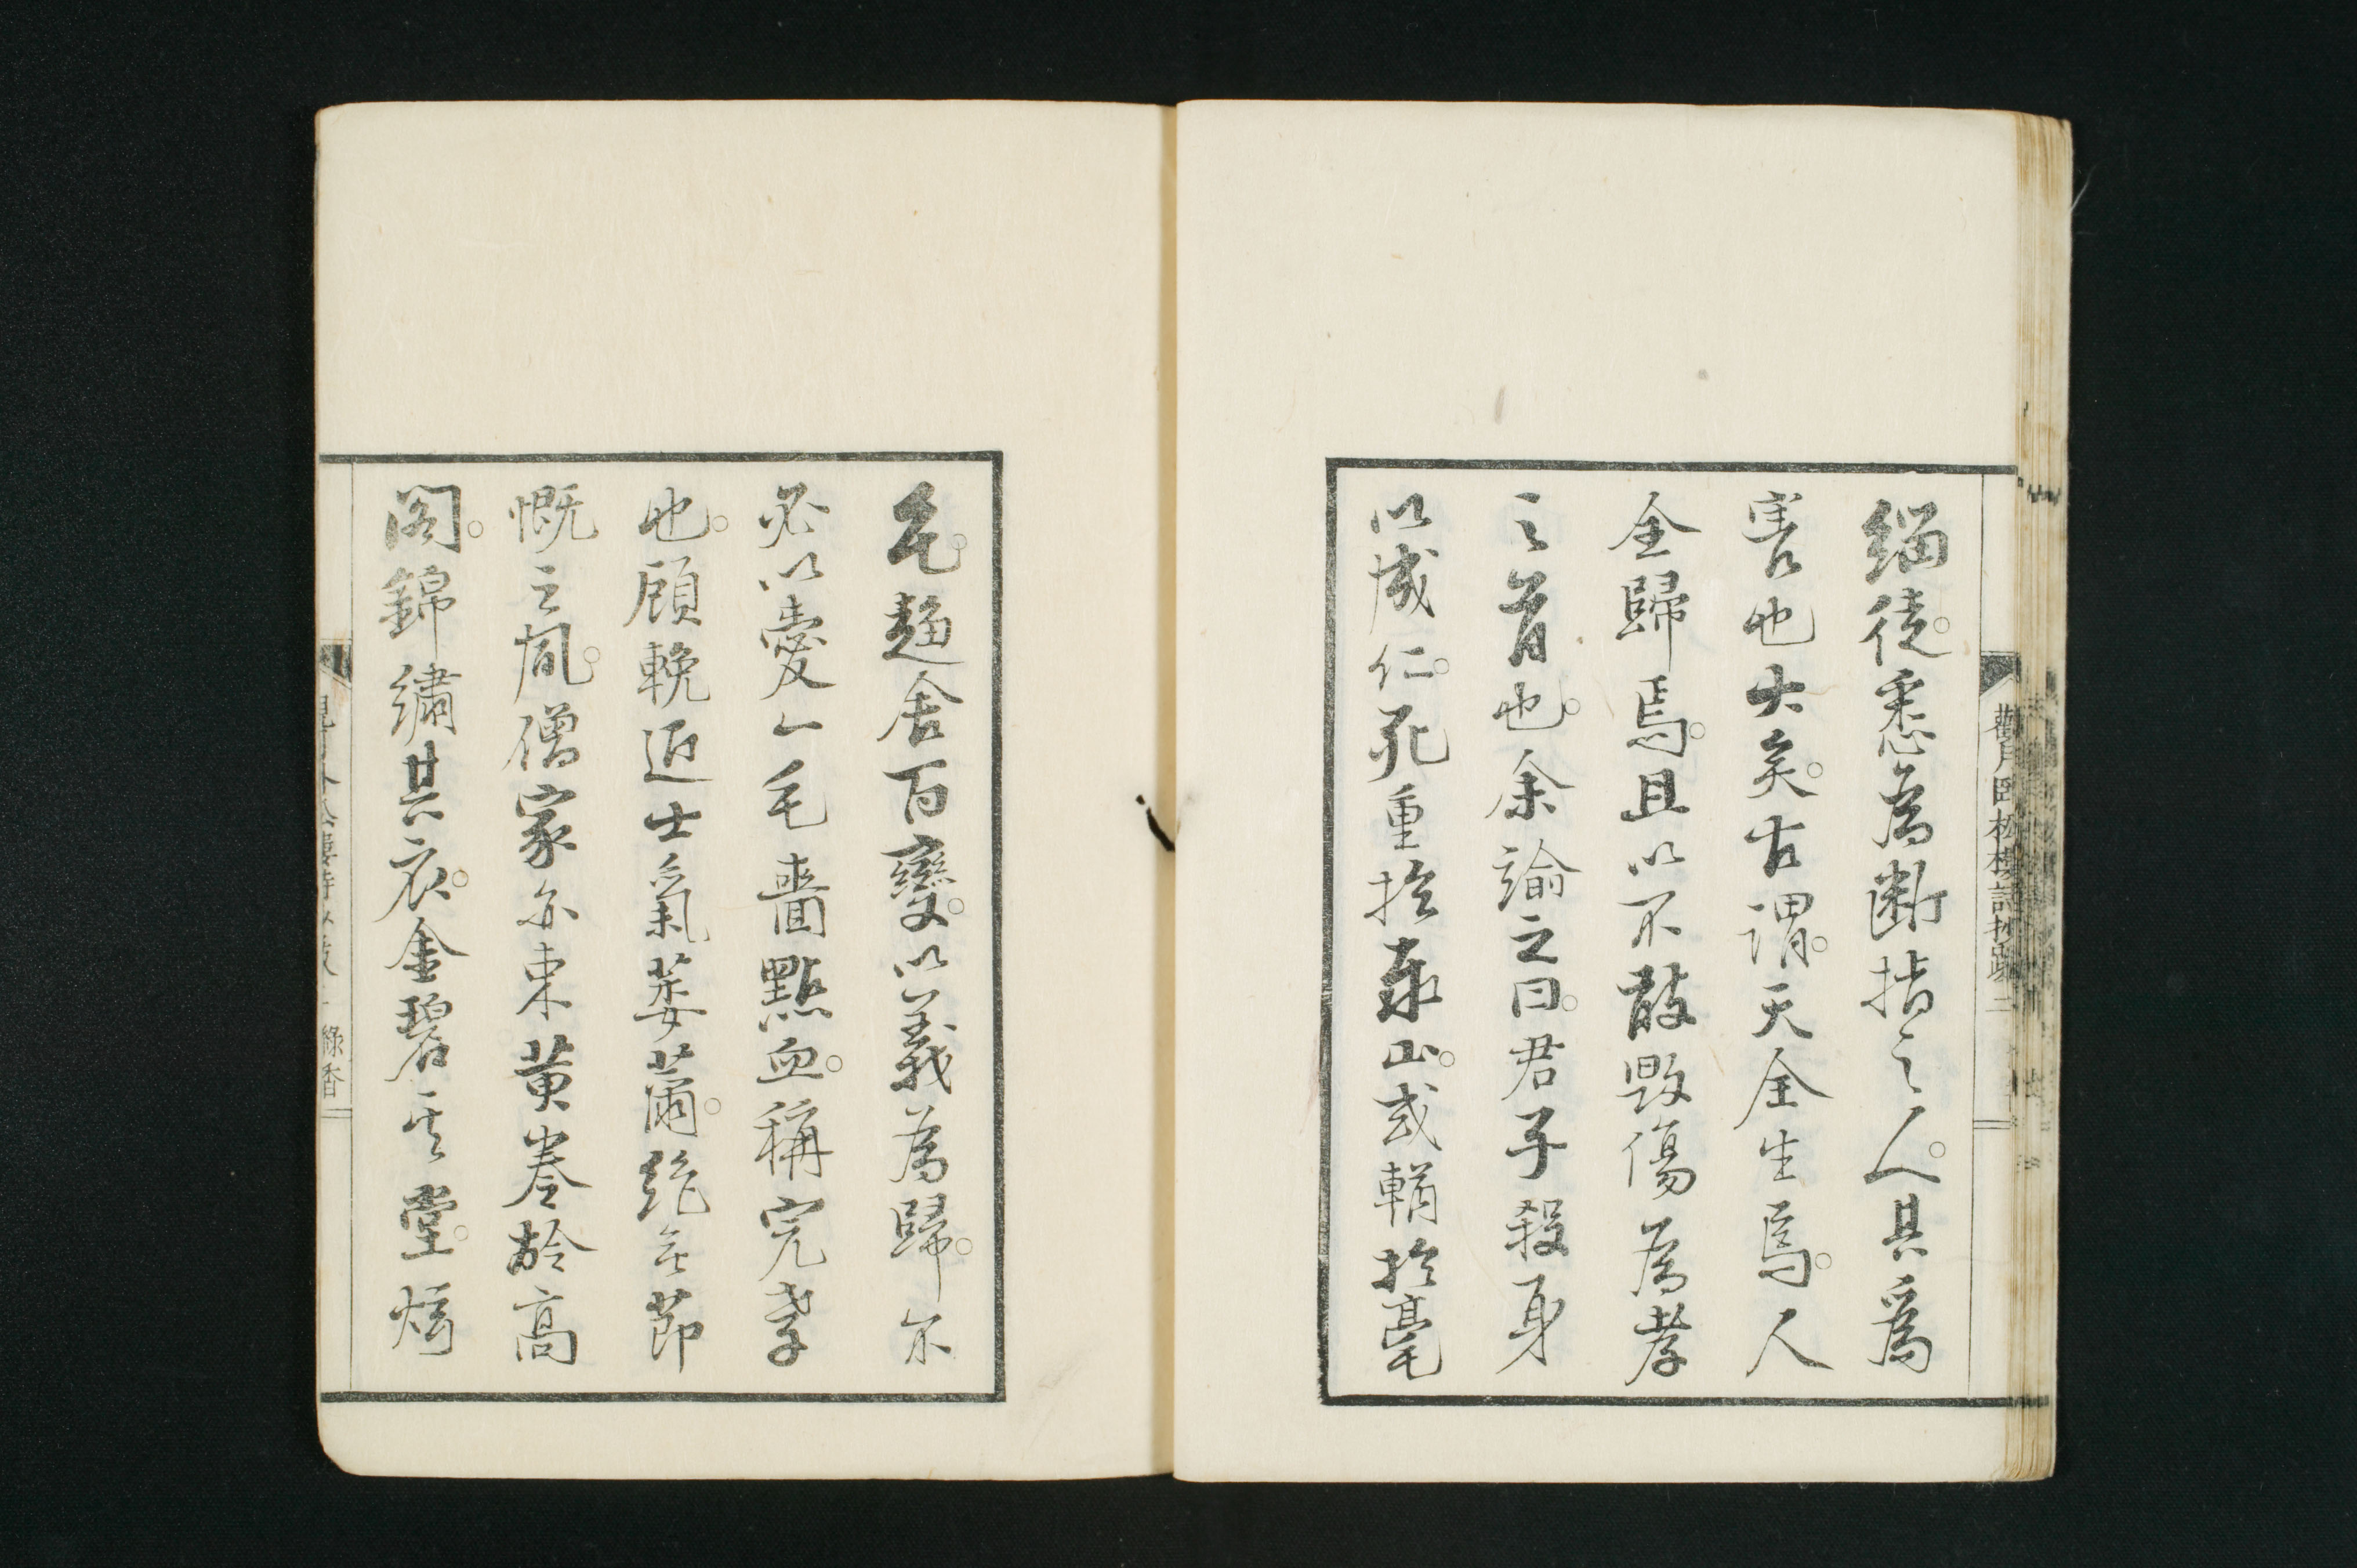 緇徒。悉為断指之人。其爲
害也大矣。古謂。天全生焉。人
全歸焉。且以不敢毀傷為孝
之首也。余諭之曰。君子殺身
以成仁。死重於泰山。或輶於毫
毛。趨舍百變。以義為歸。尔
必以愛一毛嗇點血。稱完孝
也。顧輓近士氣萎薾。絶無節
慨之風。僧家亦束黄卷齡高
閣。錦繡其衣。金碧其堂。焫
觀月臥松樓詩抄跋 二